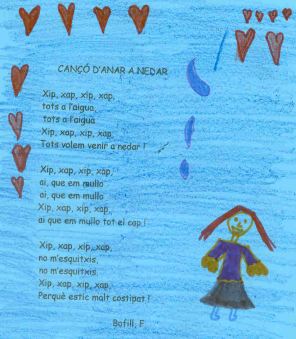 CANÇÓ D'ANAR A NEDAR
Xip, xap, xip, xap,
tots a l'aigua,
tots a l'aigua
Xip, xap, xip, xap,
Tots volem venir a nedar !
Xip, xap, xip, xap,
ai, que em mullo
ai, que em mullo
Xip, xap, xip, xap,
ai que em mullo tot el cap !
Xip, xap, xip, xap,
no m'esquitxis,
no m'esquitxis,
Xip, xap, xip, xap,
Perquè estic molt costipat !
Bofill, F